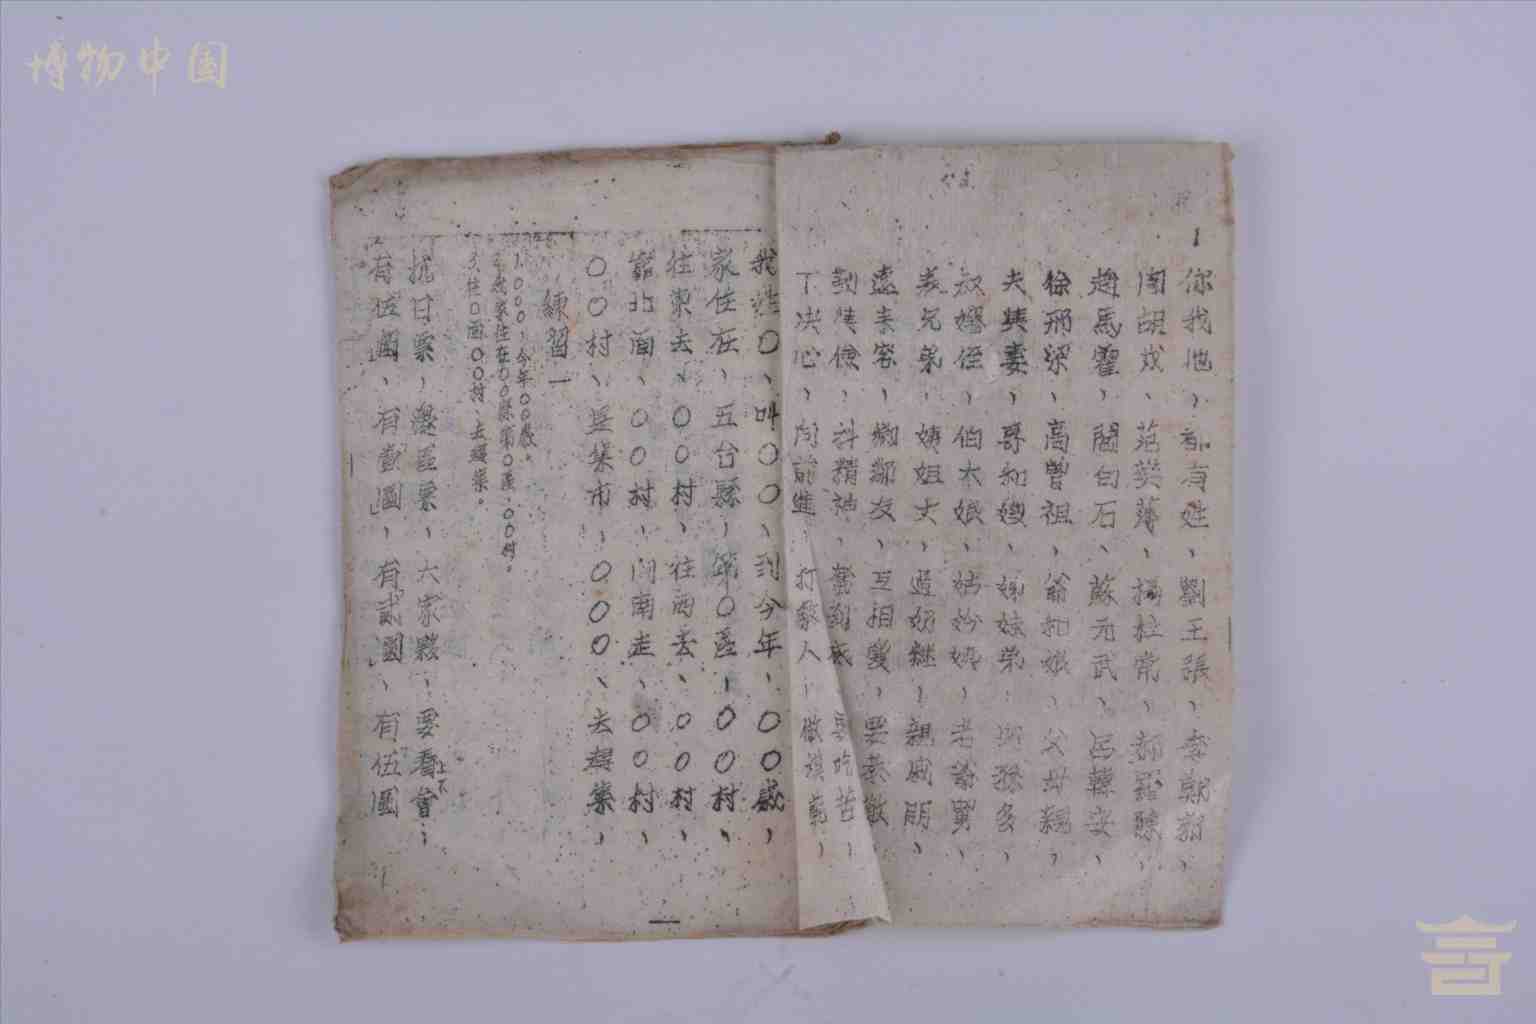 博物中国
1
你我他、都有姓、劉王張、李鄭郝、
閆胡戎、范樊薄、楊杜常、郭羅陳、
趙馬霍、閻白石、蘇元武、呂韓安、
徐邢梁、高曾祖、翁和娘、父母親、
夫妻、哥和嫂、姊妹弟、孫多、
叔嬸侄、伯大娘、姑妗姨、老舅、
表兄弟、姨姐丈、奶、親戚朋、
遠來客、鄉鄰友、互相愛、要恭敬、
勤儉、抖精神、奮到底、要吃苦、
下決心、向前進、打敵人、做模範、
我姓〇、叫〇〇、到今年、〇〇歲、
家住在、五台縣、第〇區、〇〇村、
往東去、〇〇村、往西去、〇〇村、
靠北面、〇〇村、向南走、〇〇村、
〇〇村、是集市、〇〇〇、去趕集、
練習一
1.〇〇〇、今年〇〇歲。
2.我家住在〇〇縣第〇區、〇〇村。
3.往〇面〇〇村、去趕集。
抗日票、邊區票、大家夥、要看會、
上下
有伍圓、有壹圓、有貳圓、有伍圓